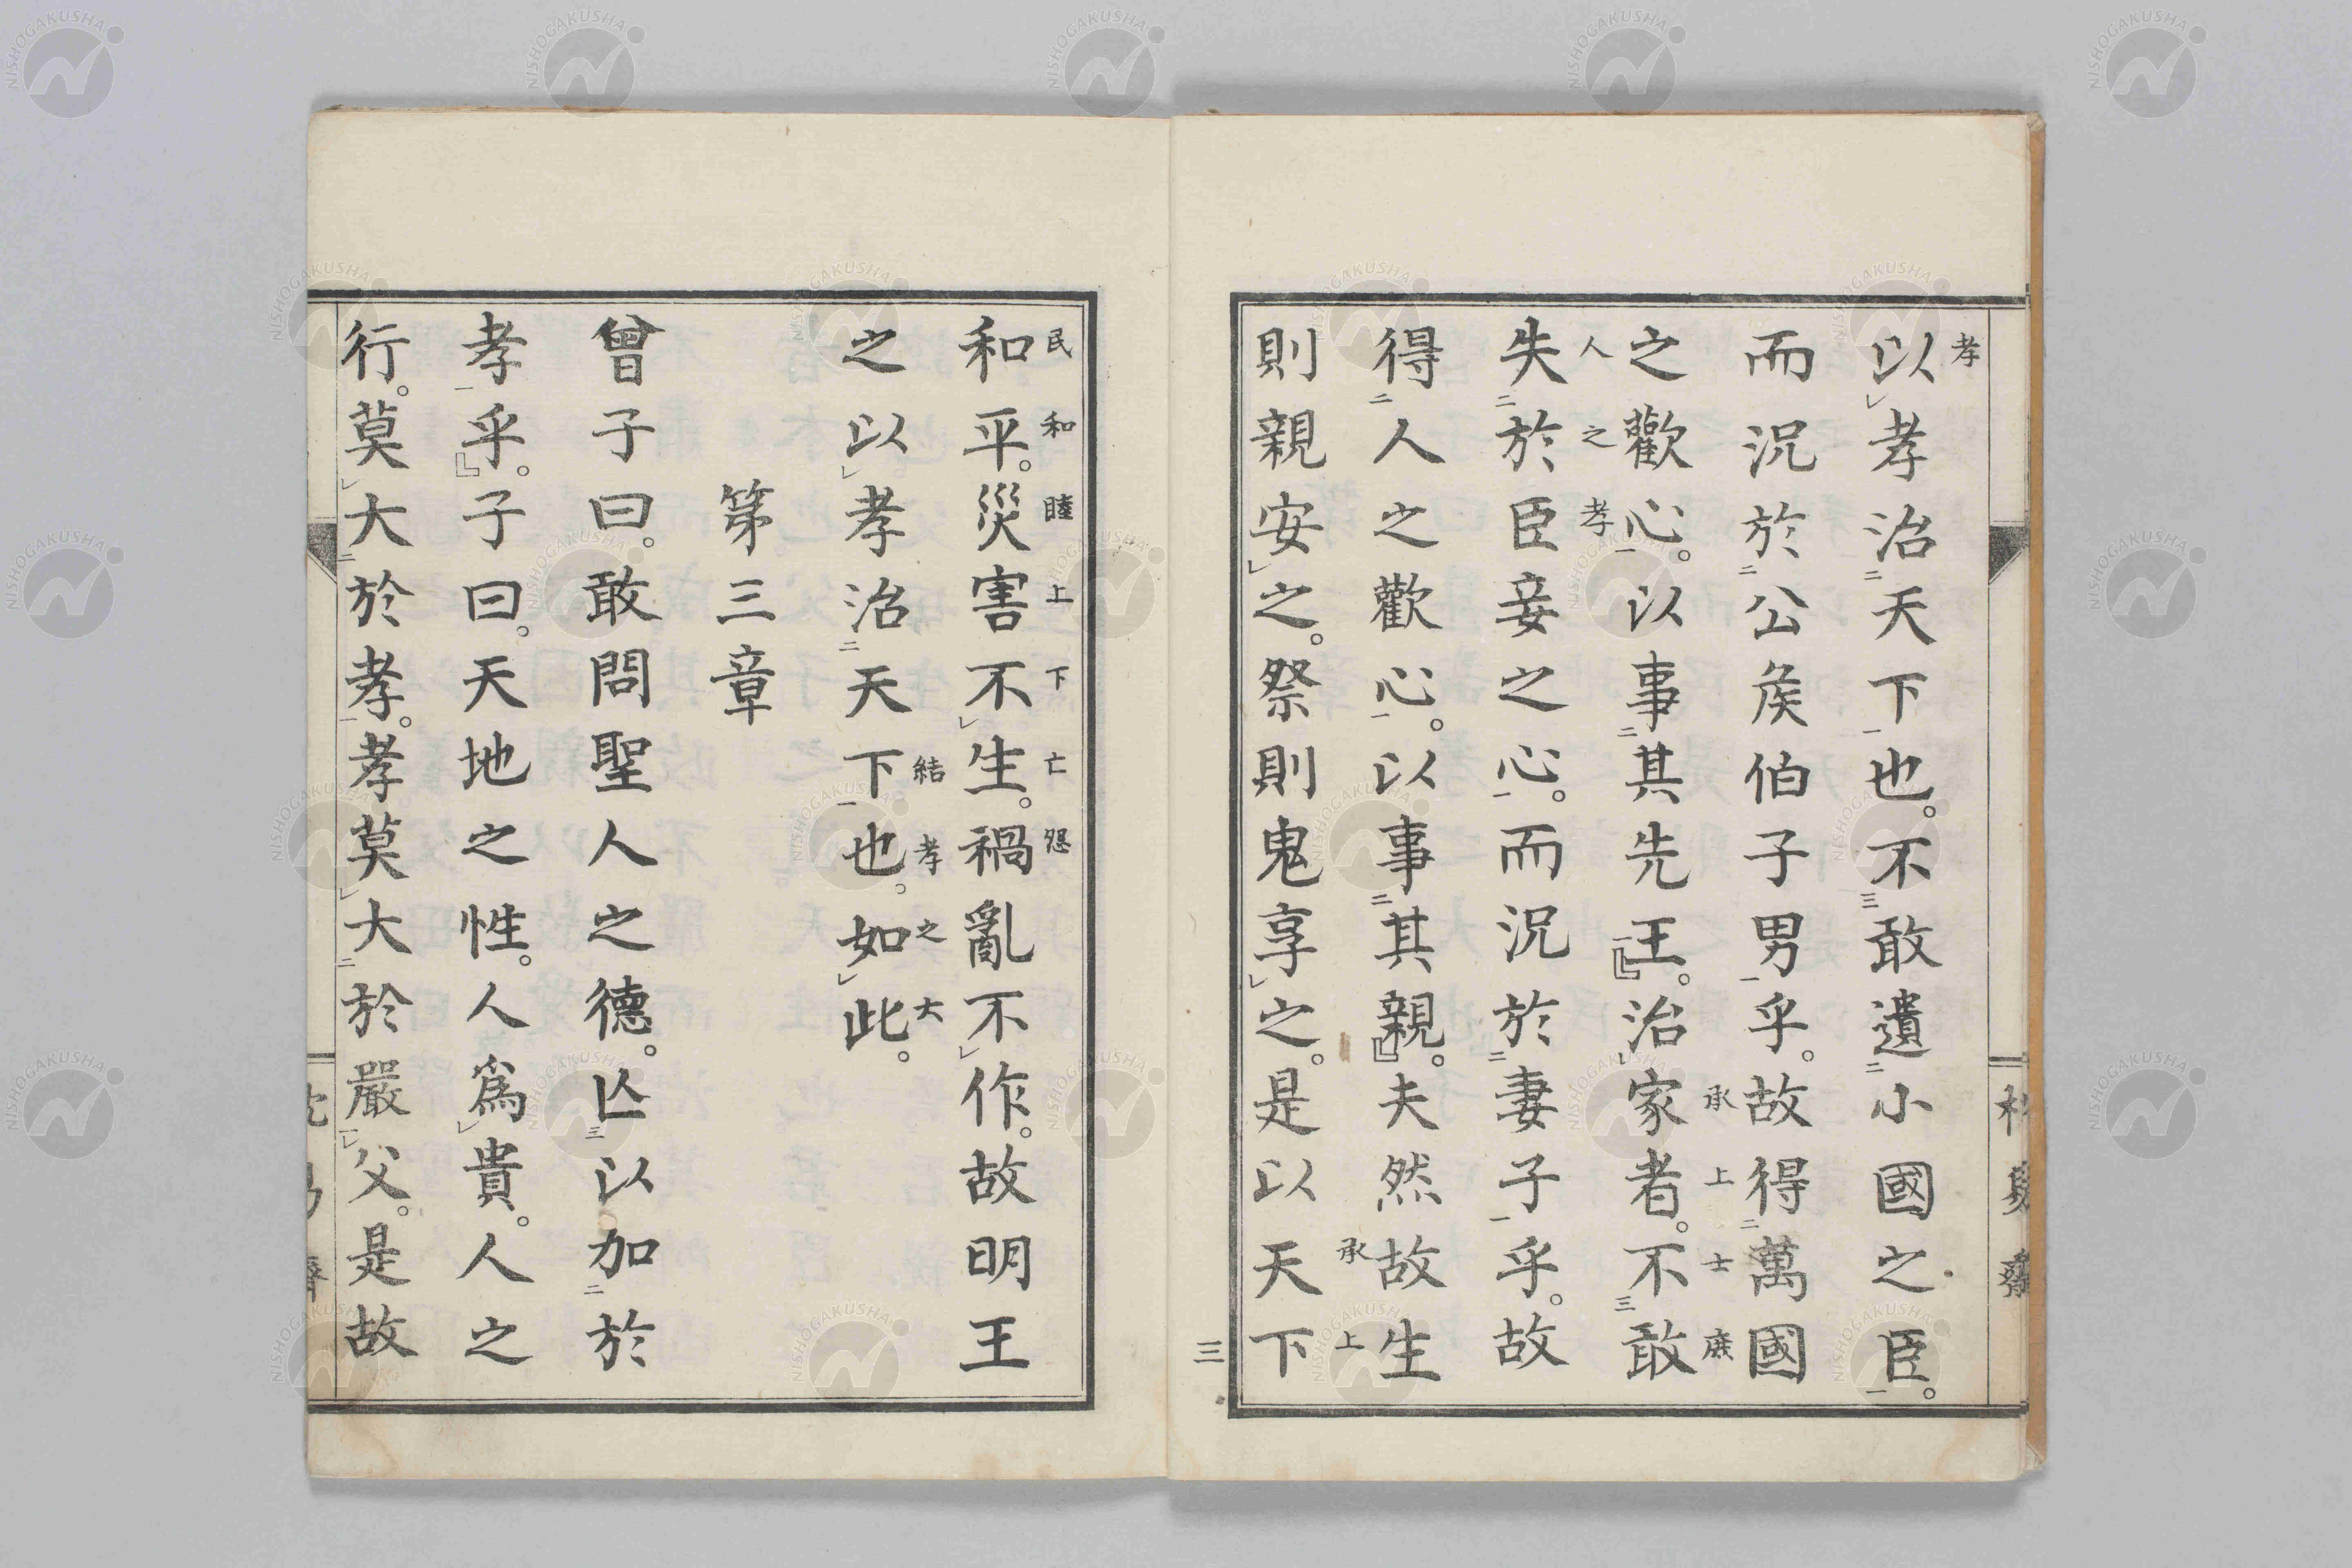 孝
以孝治天下也。不敢遺小國之臣。
而況於公矦伯子男乎。故得萬國
承上士庶
之歡心。以事其先王。治家者。不敢
人之孝
失於臣妾之心。而況於妻子乎。故
得人之歡心。以事其親。夫然故生
承上
則親安之。祭則鬼享之。是以天下
三
民和睦上下亡怨
和平。災害不生。禍亂不作。故明王
之以孝治天下也。如此。
結孝之大
第三章
曾子曰。敢問聖人之德。亾以加於
孝乎。子曰。天地之性。人爲貴。人之
行。莫大於孝。孝莫大於嚴父。是故
NISHOGAKUSHA